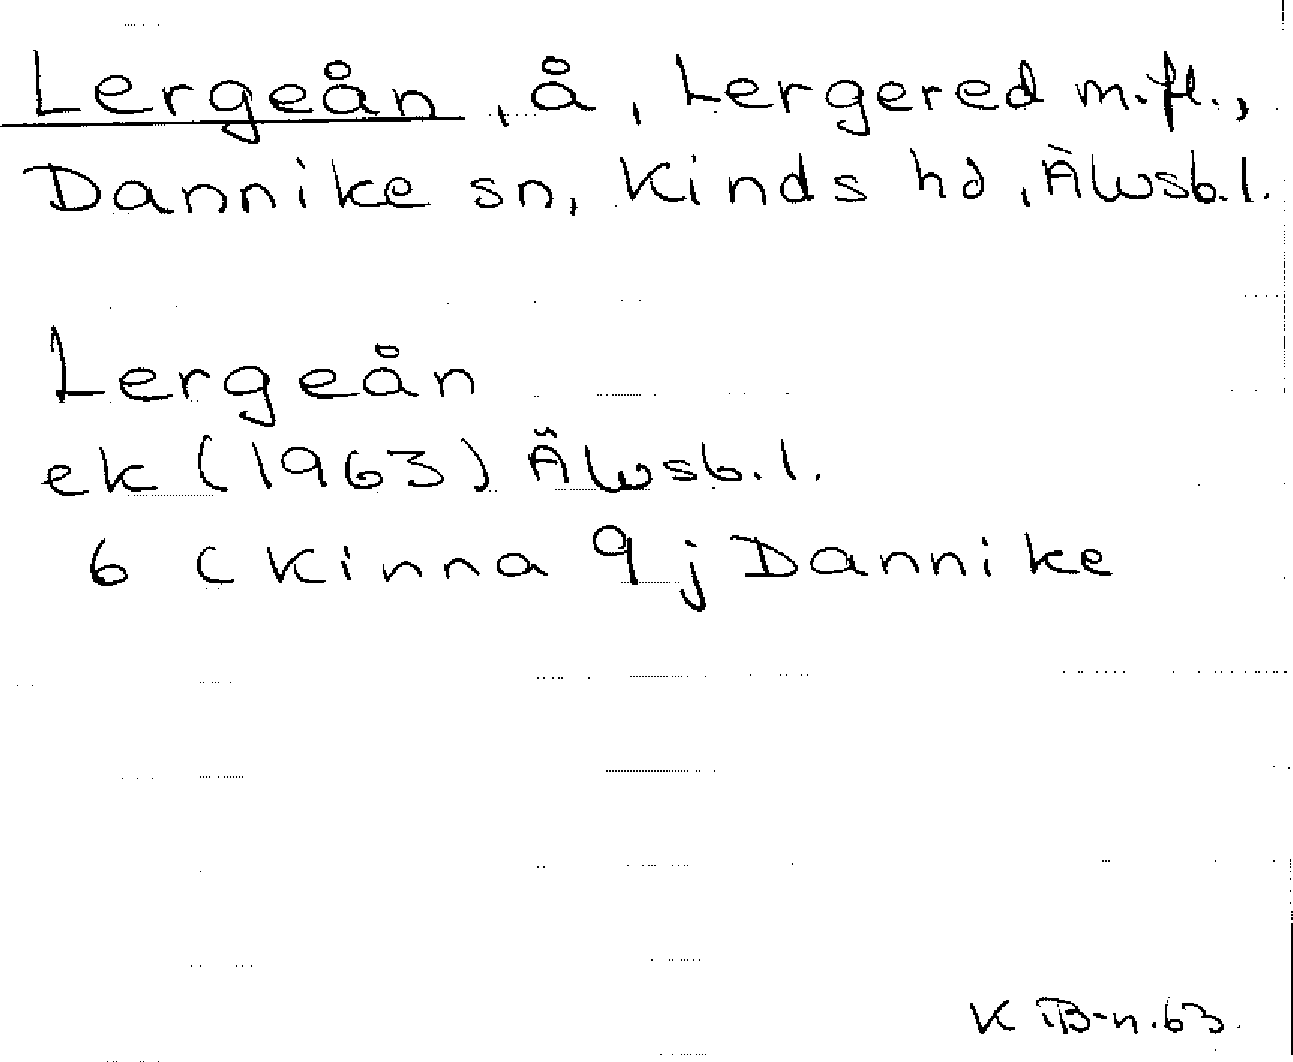 Lergeån, å, Lergered m.fl.,
Dannike sn, Kinds hd, Älvsb.l.
Lergeån
ek (1963) Älvsb.l.
6 C Kinna 9 j Dannike
K B-n.63.